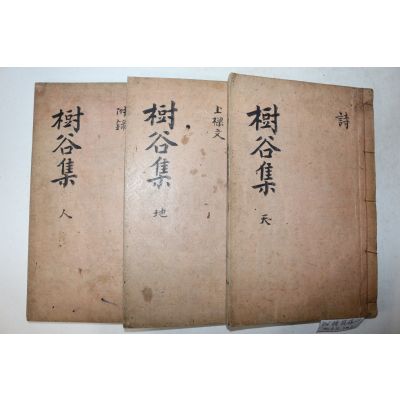 詩
樹谷集
天
上樑文
樹谷集
地
附錄
樹谷集
人